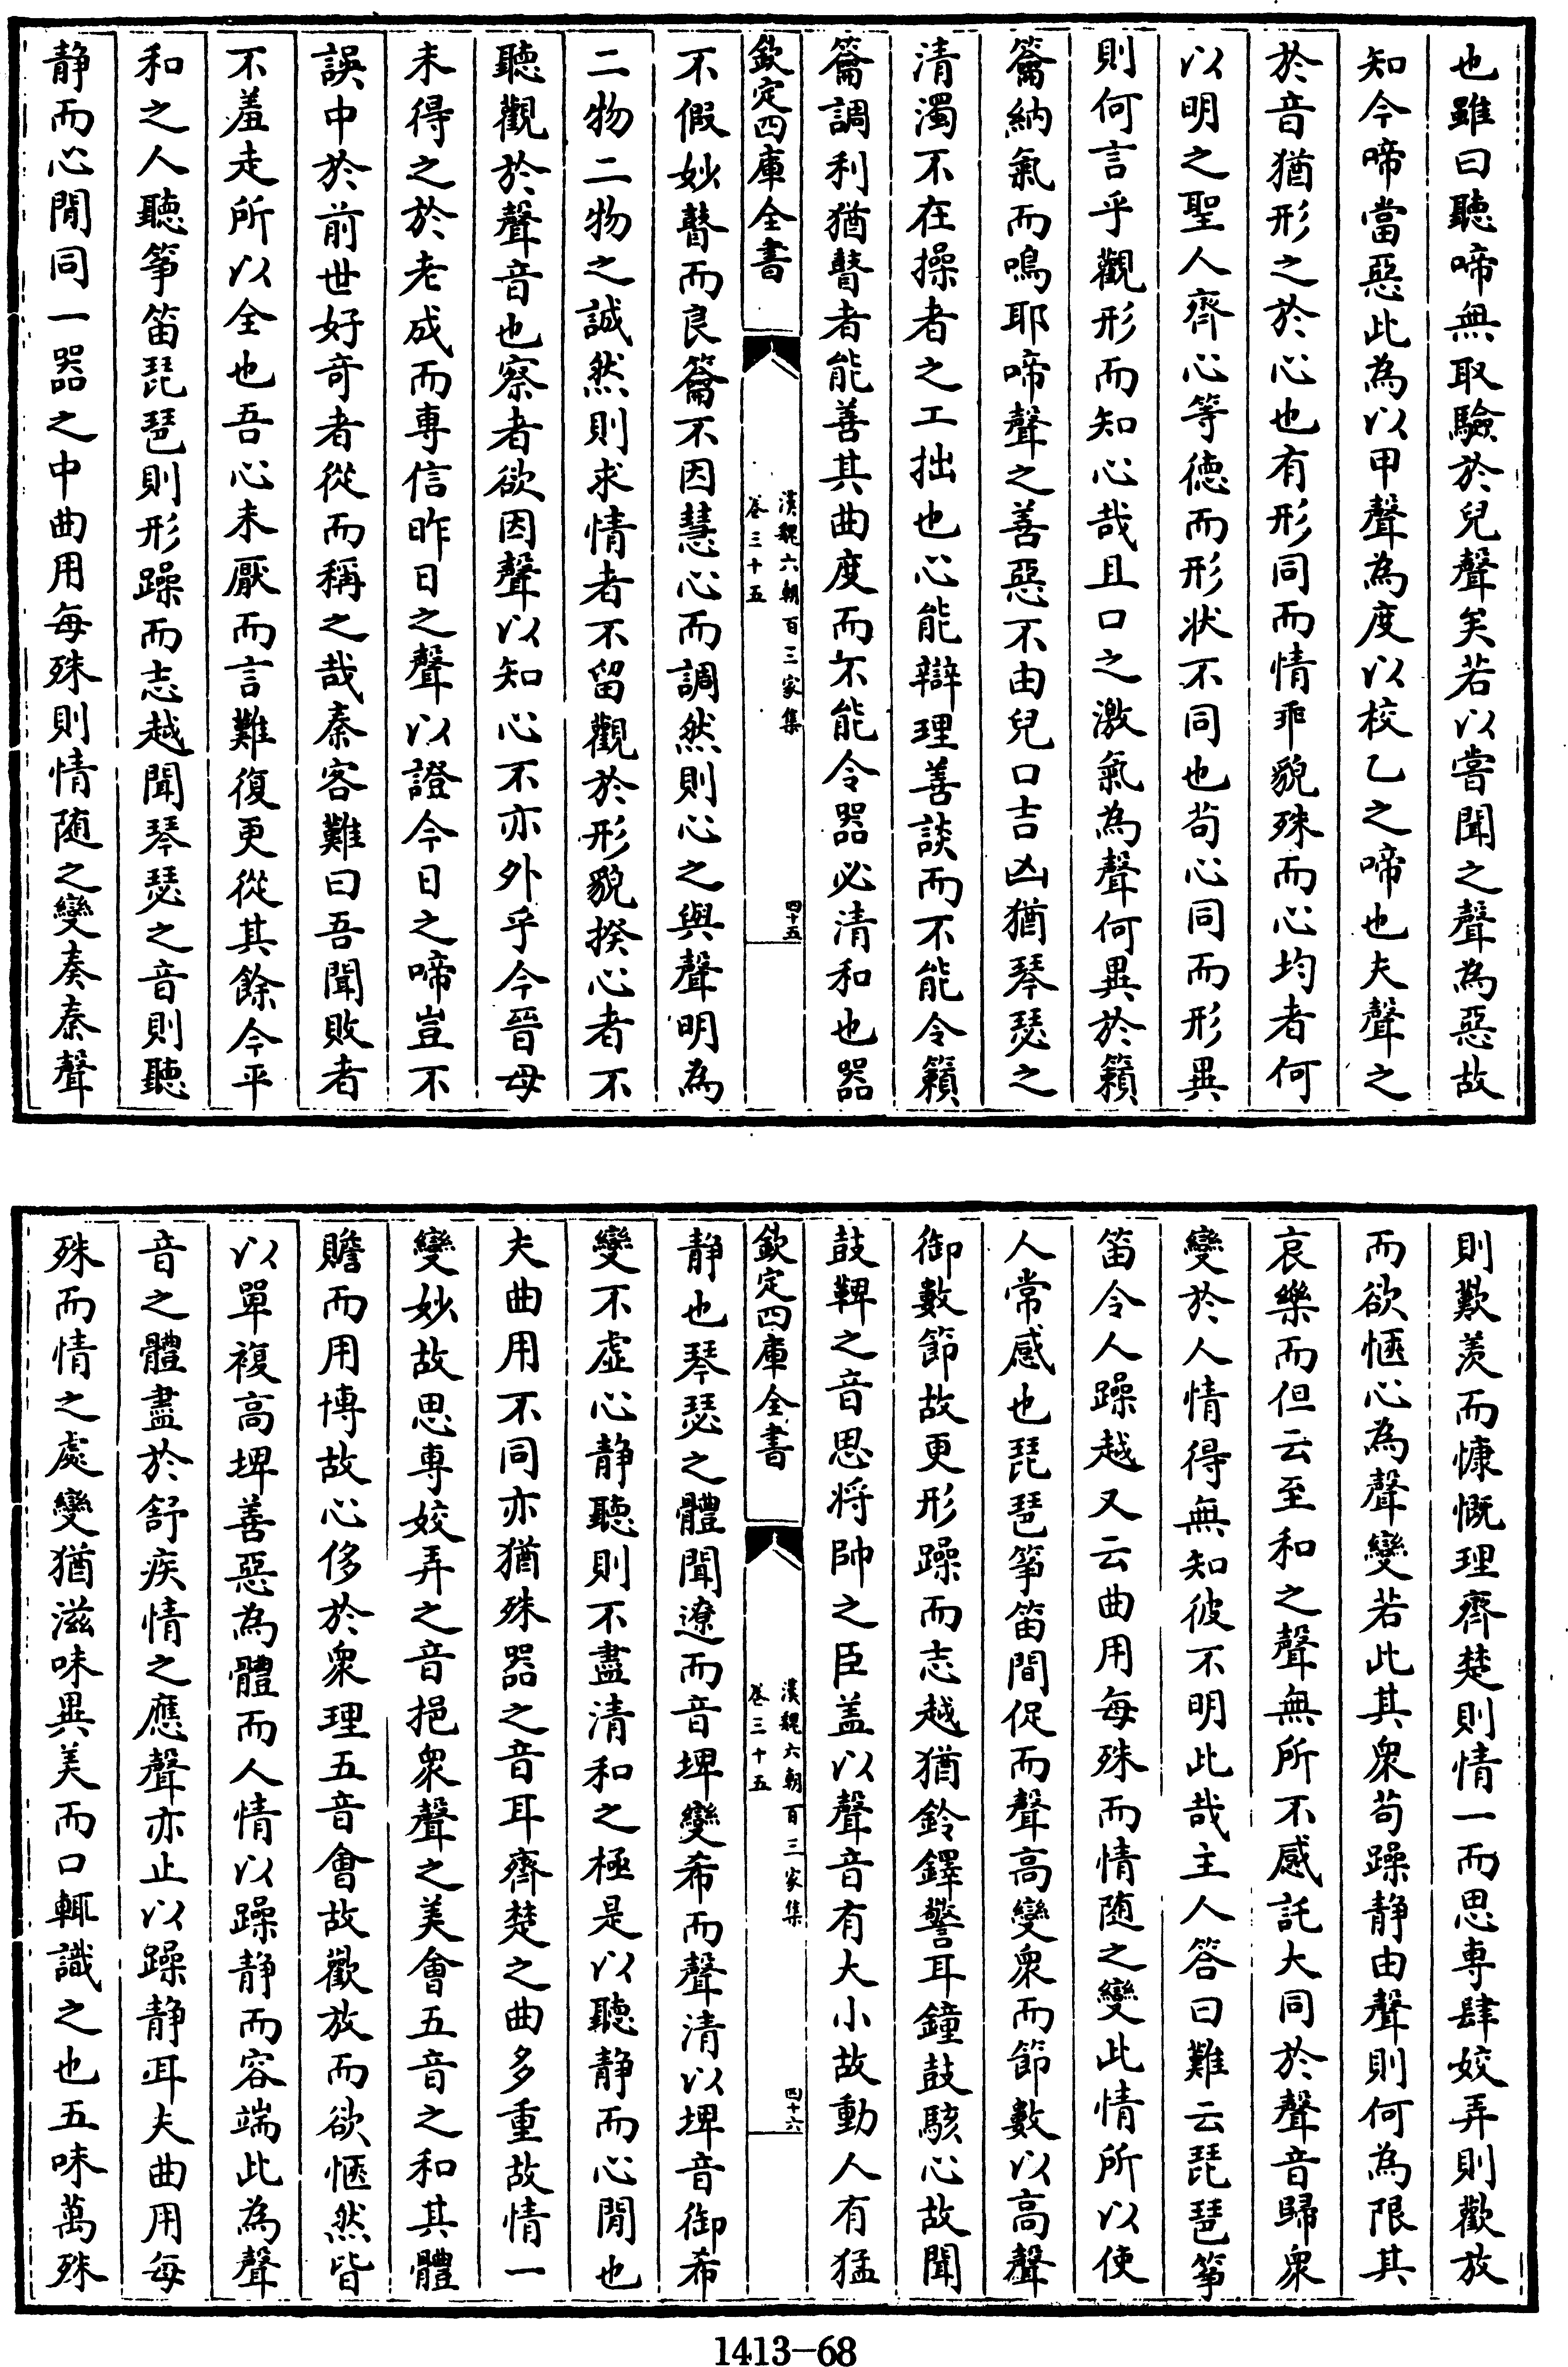 也雖曰聽啼無取驗於兒聲矣若以嘗聞之聲為惡故
知今啼當惡此為以甲聲為度以校乙之啼也夫聲之
於音猶形之於心也有形同而情乖貌殊而心均者何
以明之聖人齊心等徳而形状不同也茍心同而形異
則何言乎觀形而知心哉且口之激氣為聲何異於籟
籥納氣而鳴耶啼聲之善惡不由兒口吉凶猶琴瑟之
清濁不在操者之工拙也心能辯理善談而不能令籟
籥調利猶瞽者能善其曲度而不能令器必清和也器
欽定四庫全書
漢魏六朝百三家集
卷三十五
四十五
不假妙瞽而良籥不因慧心而調然則心之與聲明為
二物二物之誠然則求情者不留觀於形貌揆心者不
聽觀於聲音也察者欲因聲以知心不亦外乎今晉母
未得之於老成而專信昨日之聲以證今日之啼豈不
誤中於前世好奇者從而稱之哉秦客難曰吾聞敗者
不羞走所以全也吾心未厭而言難復更從其餘今平
和之人聽筝笛琵琶則形躁而志越聞琴瑟之音則聽
静而心閒同一器之中曲用每殊則情随之變奏秦聲
則歎羡而慷慨理齊楚則情一而思専肆姣弄則歡放
而欲愜心為聲變若此其衆茍躁静由聲則何為限其
哀樂而但云至和之聲無所不感託大同於聲音歸衆
變於人情得無知彼不明此哉主人答曰難云琵琶筝
笛令人躁越又云曲用每殊而情随之變此情所以使
人常感也琵琶筝笛間促而聲高變衆而節數以高聲
御數節故更形躁而志越猶鈴鐸警耳鐘鼓駭心故聞
鼓鞞之音思将帥之臣盖以聲音有大小故動人有猛
欽定四庫全書
漢魏六朝百三家集
卷三十五
四十六
静也琴瑟之體聞遼而音埤變希而聲清以埤音御希
變不虚心静聽則不盡清和之極是以聽静而心閒也
夫曲用不同亦猶殊器之音耳齊楚之曲多重故情一
變妙故思専姣弄之音挹衆聲之美會五音之和其體
贍而用博故心侈於衆理五音會故歡放而欲愜然皆
以單複高埤善惡為體而人情以躁静而容端此為聲
音之體盡於舒疾情之應聲亦止以躁静耳夫曲用每
殊而情之處變猶滋味異美而口輒識之也五味萬殊
1413-68